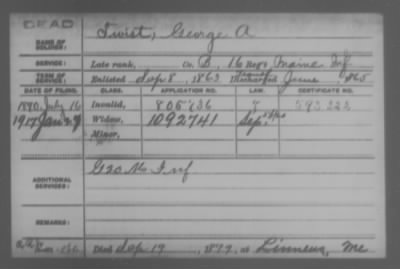 DEAD
NAME OF SOLDIER: Twist, George A
SERVICE: Late rank, Co. B, 16 Reg't Maine Inf
TERM OF SERVICE: Enlisted Sep 8, 1863 Discharged June 1865
DATE OF FILING. CLASS. APPLICATION NO. LAW. CERTIFICATE NO.
1890, July 16 Invalid, 805736 593222
1917 Jan Widow, 1092741 Sep.
Minor,
ADDITIONAL SERVICES: G 20 Me Inf
REMARKS:
Died Sep 19, at Linneus, Me